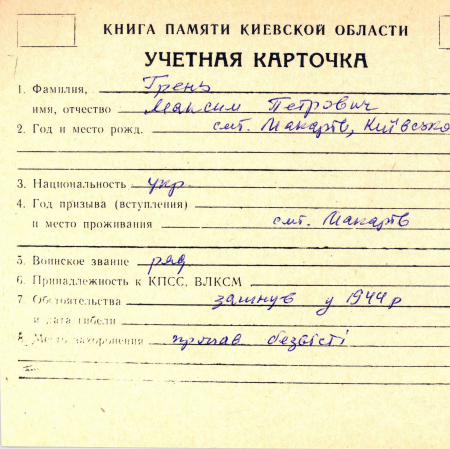 КНИГА ПАМЯТИ КИЕВСКОЙ ОБЛАСТИ
УЧЕТНАЯ КАРТОЧКА
1. Фамилия, Грень
имя, отчество Максим Петрович
2. Год и место рожд. смт. Макарів, Київсько
3. Национальность укр.
4. Год призыва (вступления)
и место проживания смт. Макарів
5. Воинское звание ряд
6. Принадлежность к КПСС, ВЛКСМ
7. Обстоятельства загинув у 1944 р
и дата гибели
8. Место захоронения пропав безвісті